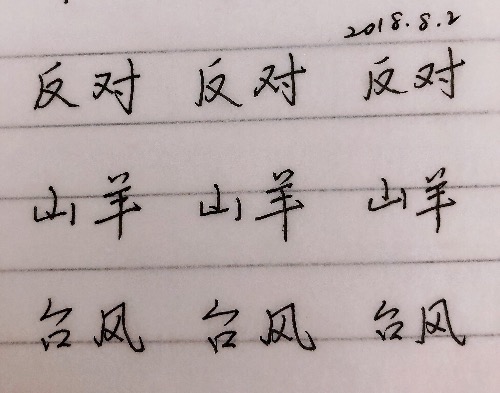 2018.8.2
反对 反对 反对
山羊 山羊 山羊
台风 台风 台风